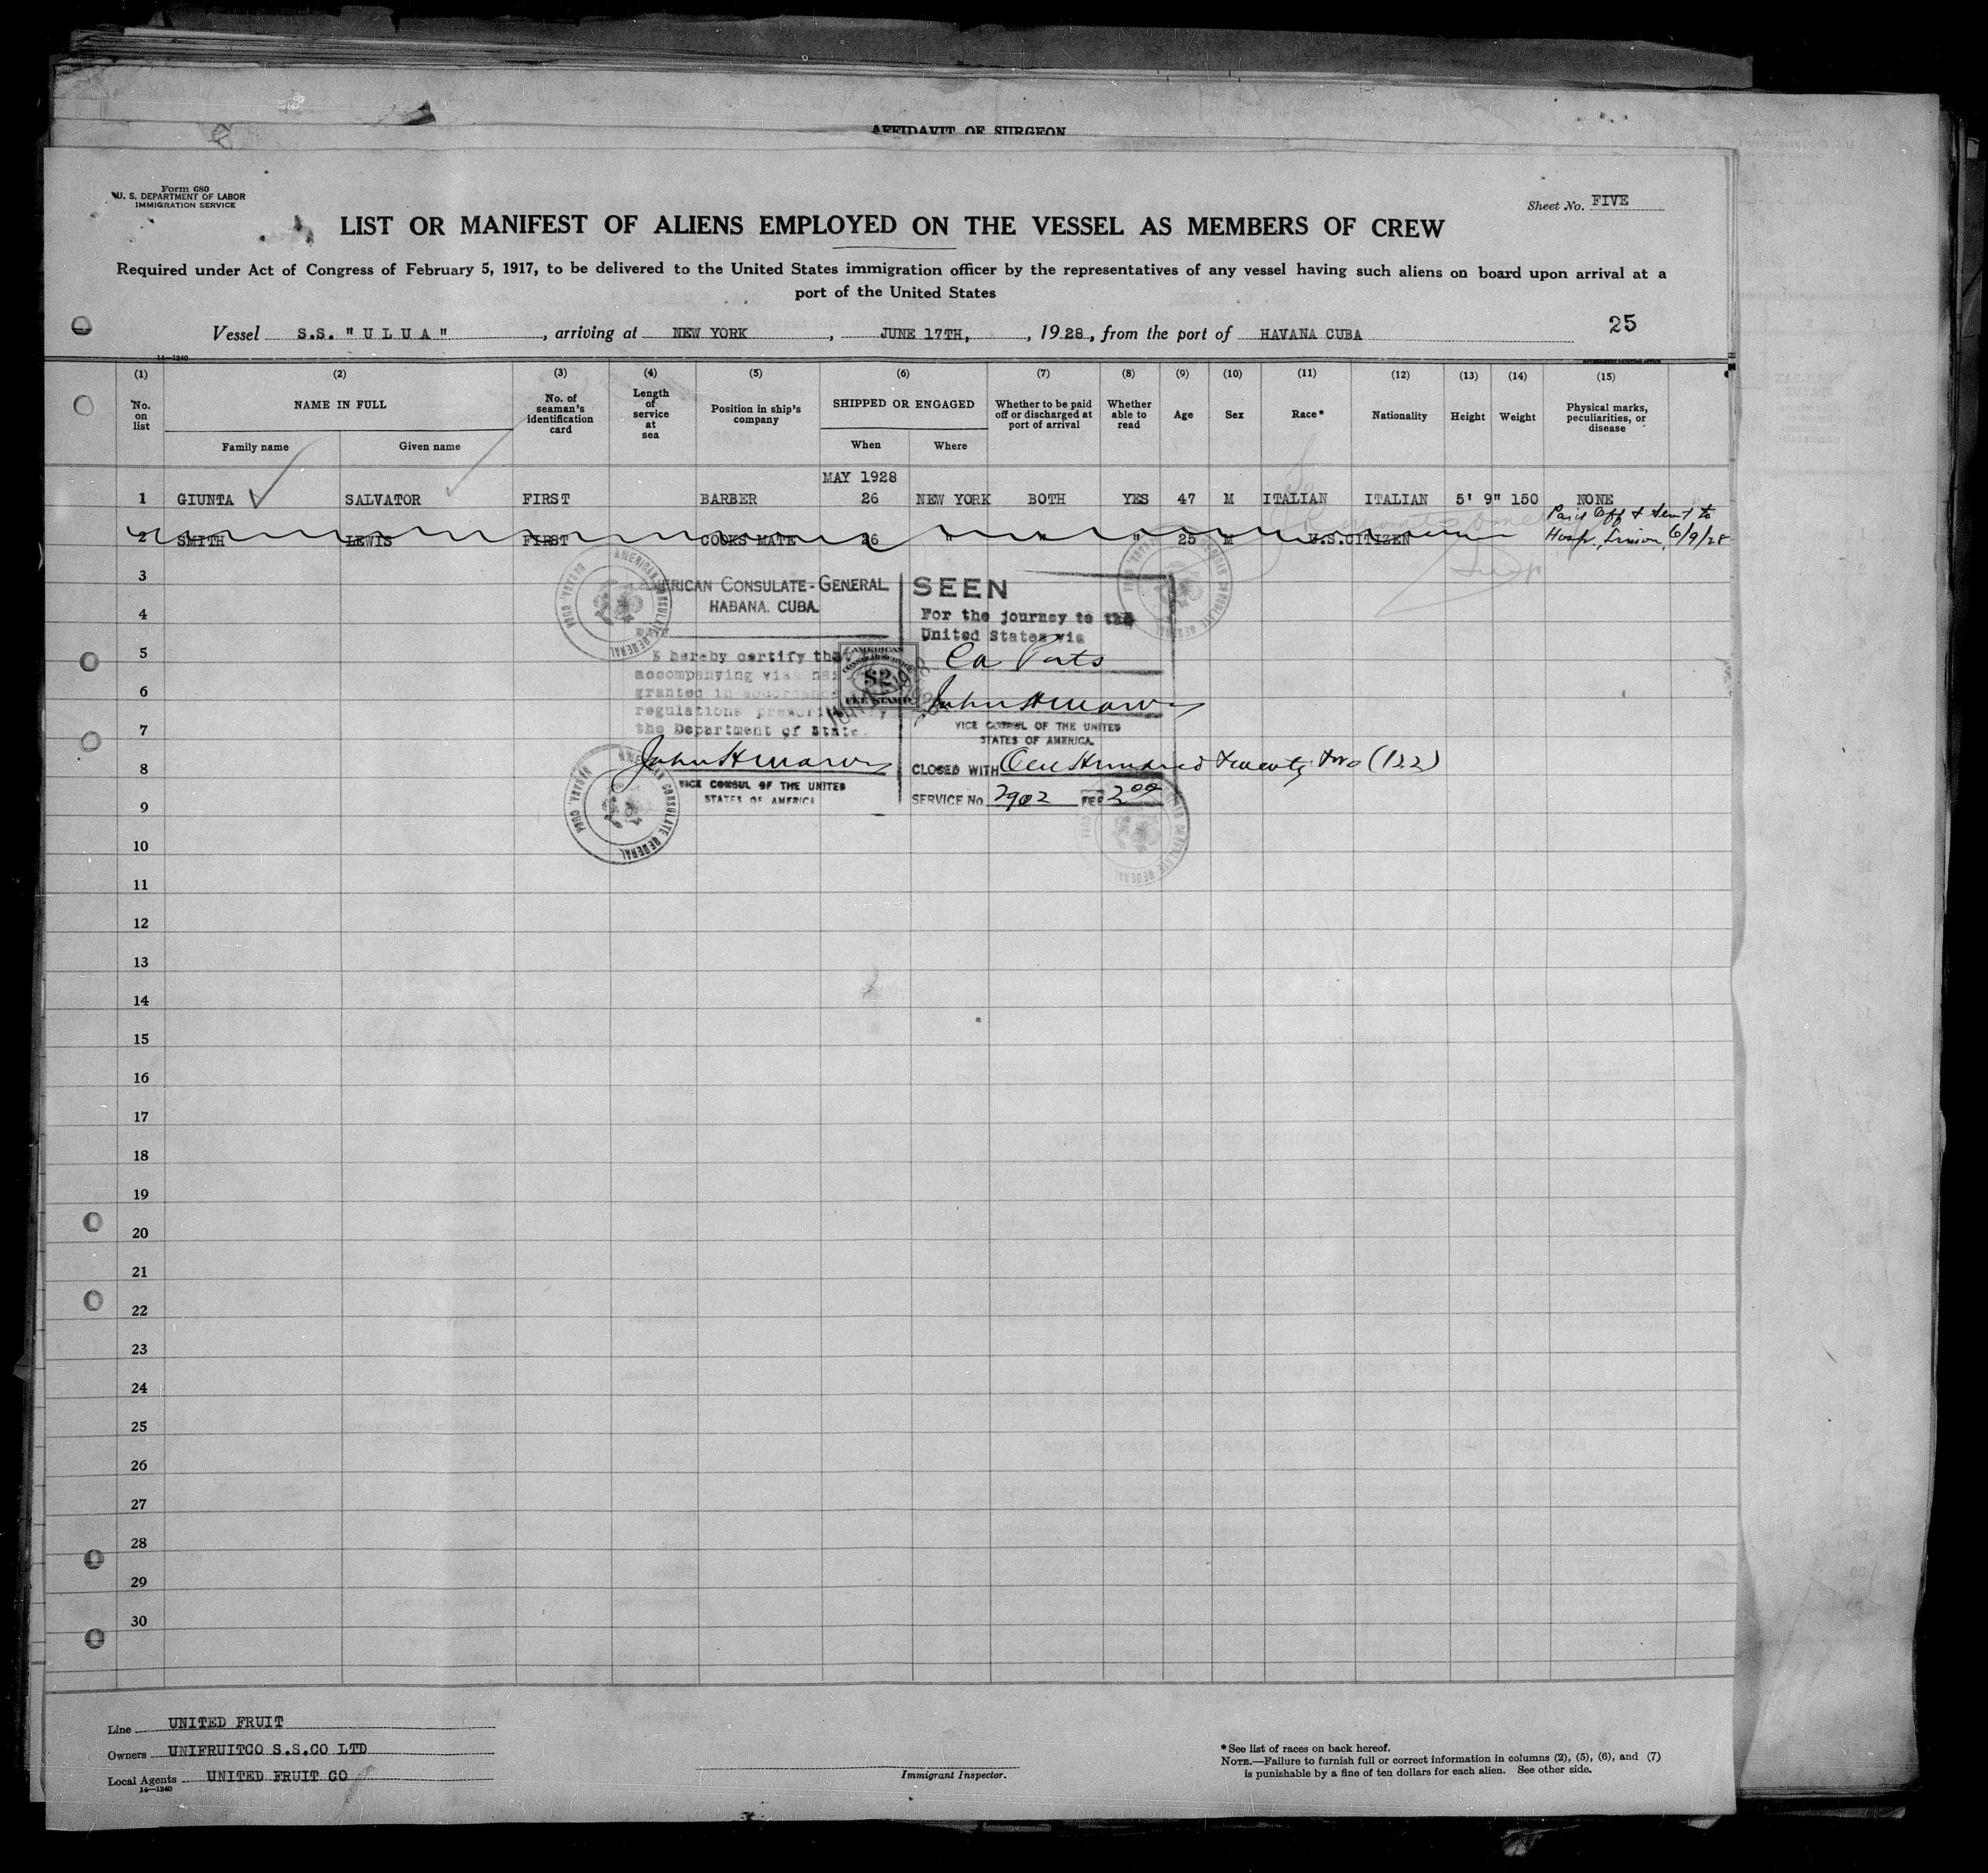 AFFIDAVIT OF SURGEON
Form 680
U. S. DEPARTMENT OF LABOR
IMMIGRATION SERVICE
Sheet No. FIVE
LIST OR MANIFEST OF ALIENS EMPLOYED ON THE VESSEL AS MEMBERS OF CREW
Required under Act of Congress of February 5, 1917, to be delivered to the United States immigration officer by the representatives of any vessel having such aliens on board upon arrival at a
port of the United States
Vessel S.S. "ULUA", arriving at NEW YORK, JUNE 17TH, , 1928, from the port of HAVANA CUBA
25
14—1240
(1) (2) (3) (4) (5) (6) (7) (8) (9) (10) (11) (12) (13) (14) (15)
No. on list
NAME IN FULL
Family name
Given name
No. of seaman's identification card
Length of service at sea
Position in ship's company
SHIPPED OR ENGAGED
When
Where
Whether to be paid off or discharged at port of arrival
Whether able to read
Age
Sex
Race*
Nationality
Height
Weight
Physical marks, peculiarities, or disease
MAY 1928
1 GIUNTA SALVATOR FIRST BARBER 26 NEW YORK BOTH YES 47 M ITALIAN ITALIAN 5' 9" 150 NONE
Paid Off & Sent to
2 SMITH LEWIS FIRST COOKS MATE 26 " " " 25 M U.S.CITIZEN Hosp., Limon, 6/9/28
3
4
5
6
7
8
9
10
11
12
13
14
15
16
17
18
19
20
21
22
23
24
25
26
27
28
29
30
AMERICAN CONSULATE GENERAL
HABANA, CUBA
ERICAN CONSULATE-GENERAL
HABANA, CUBA.
I hereby certify that
accompanying visa has
granted in accordance
regulations prescribed
the Department of State.
John H Marvin
VICE CONSUL OF THE UNITED
STATES OF AMERICA
AMERICAN
CONSULAR SERVICE
$2
FEE STAMP
SEEN
For the journey to the
United States via
VICE CONSUL OF THE UNITED
STATES OF AMERICA.
CLOSED WITH One Hundred twenty two (122)
SERVICE No. 2902 FEE 2.00
Line UNITED FRUIT
Owners UNIFRUITCO S.S.CO LTD
Local Agents UNITED FRUIT CO
14—1240
Immigrant Inspector.
*See list of races on back hereof.
NOTE.—Failure to furnish full or correct information in columns (2), (5), (6), and (7)
is punishable by a fine of ten dollars for each alien. See other side.